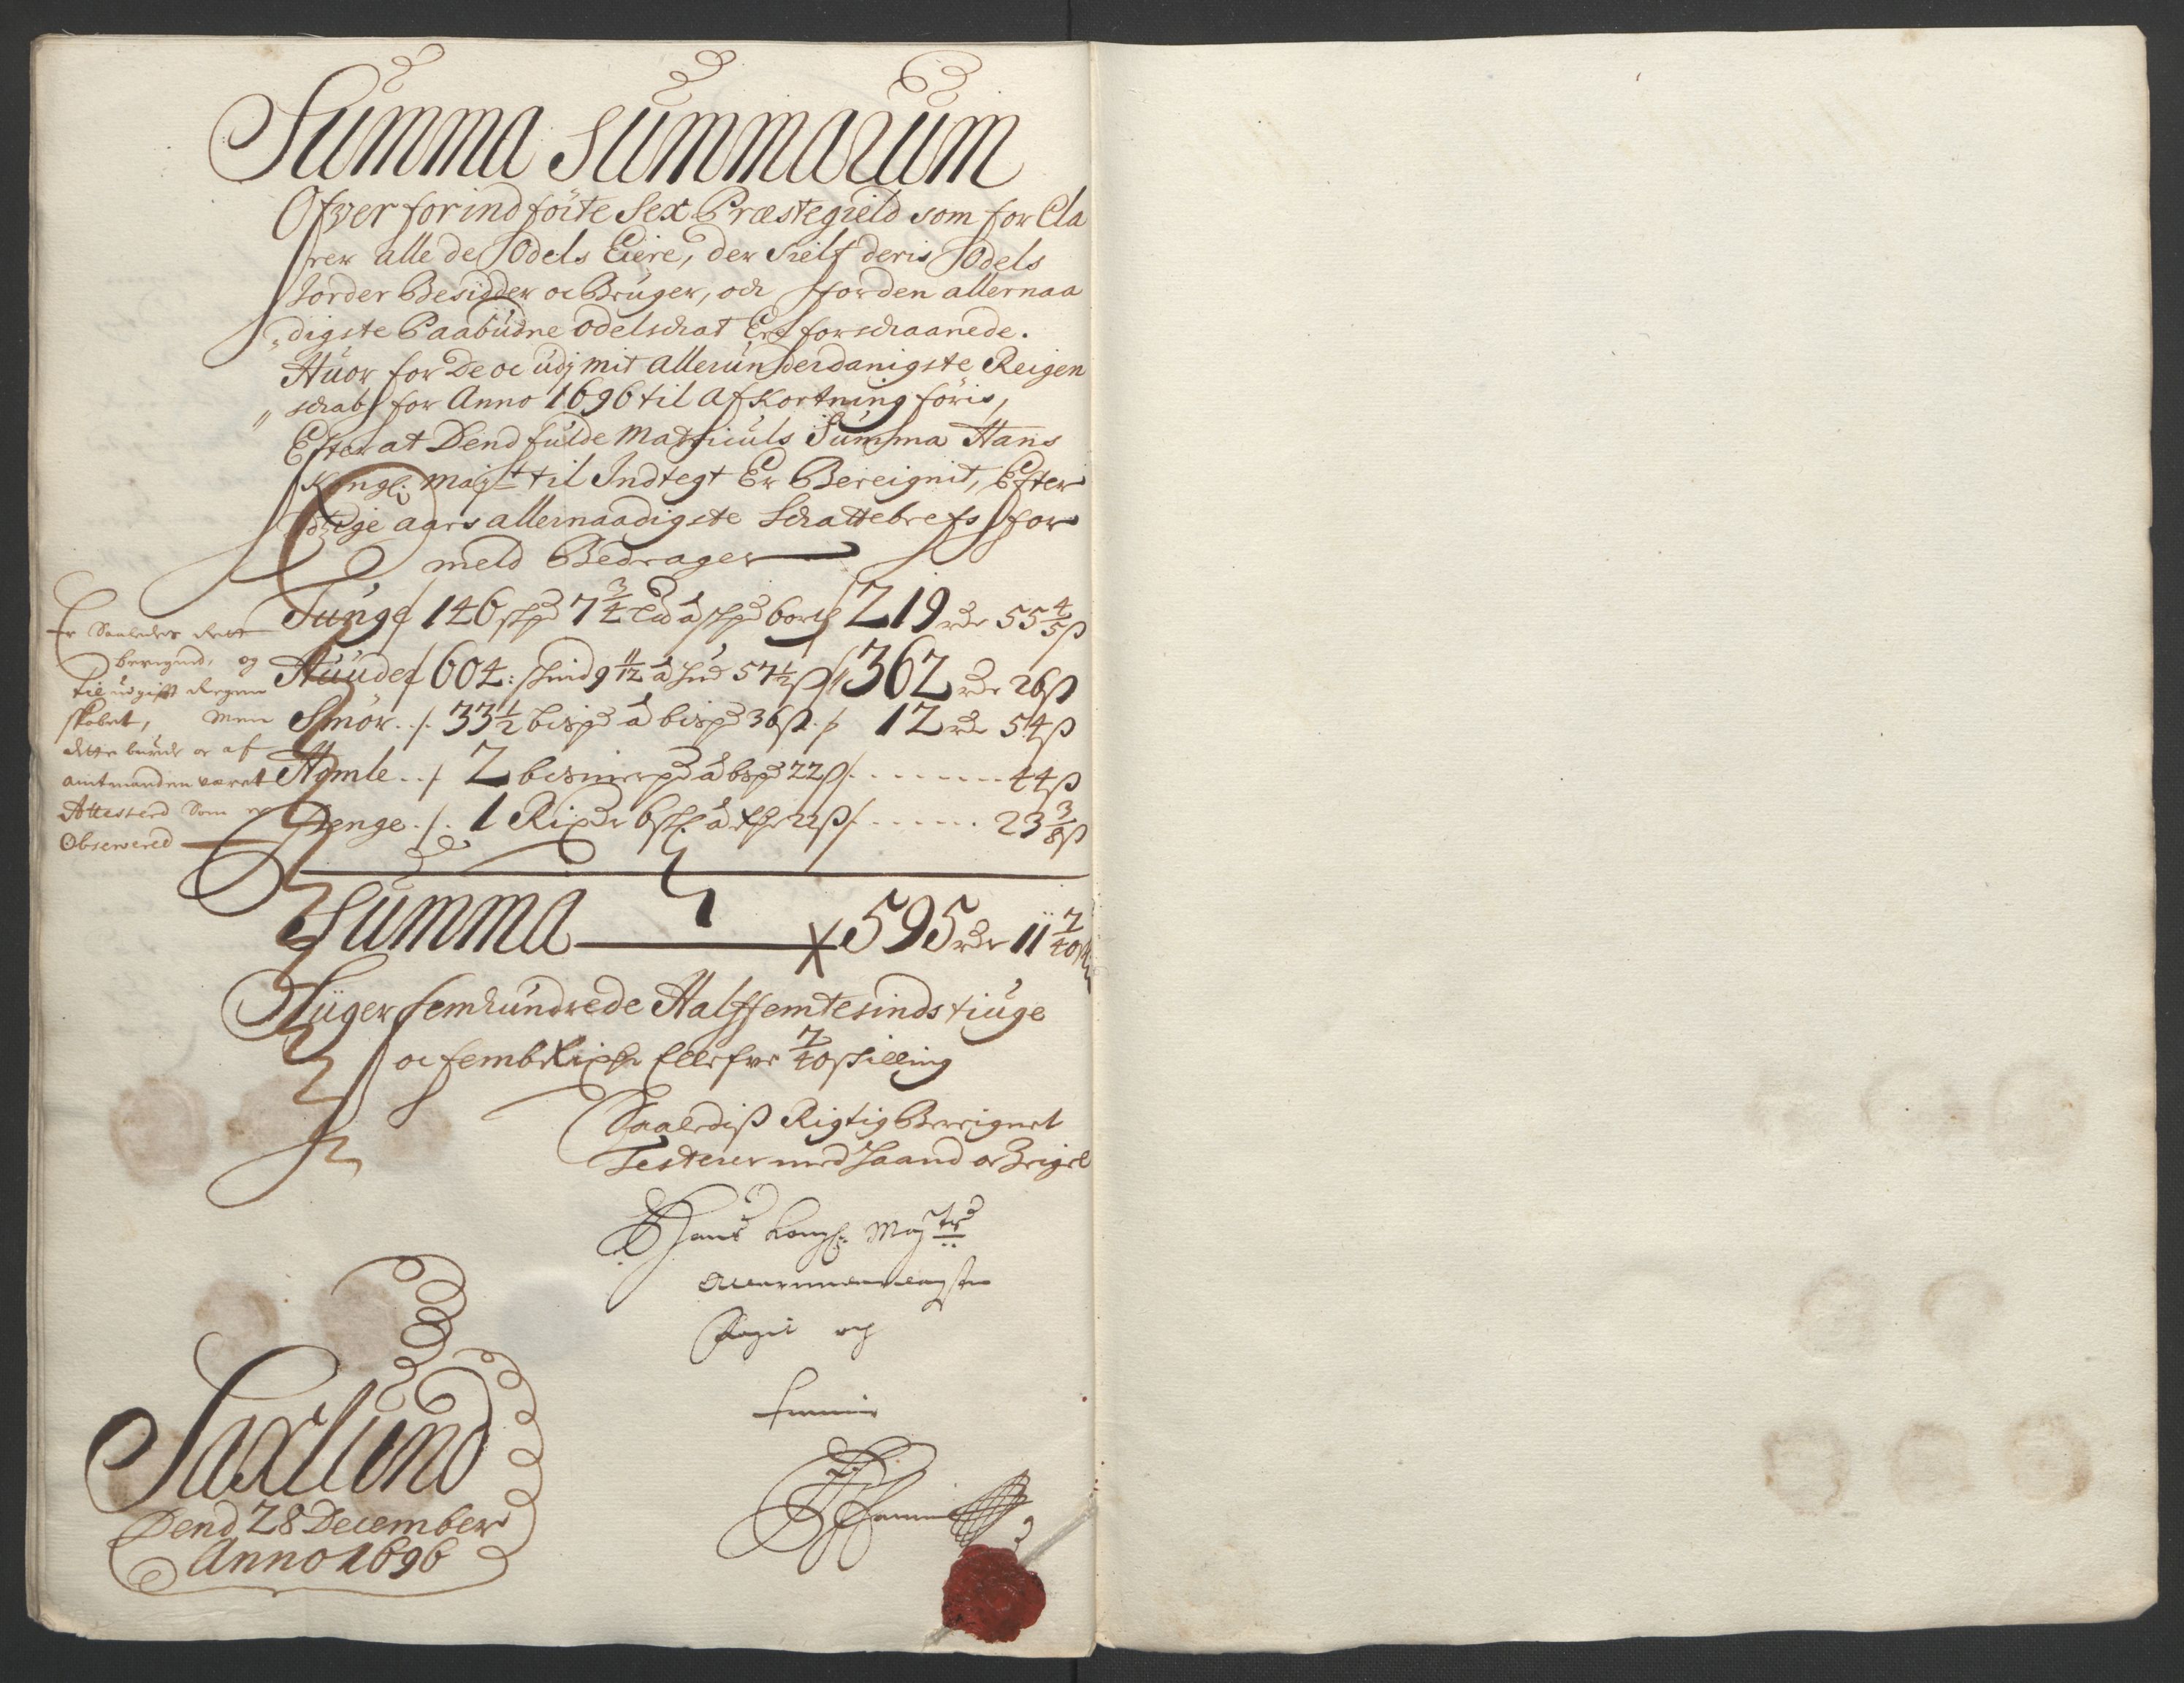 Summa Summarum
Ofver forindförte Sex Præstegield som for Cla
rer alle de Odels Eiere, der Sielf deris Odels
Jorder Besidder oc Bruger, och for den allernaa
digste Paabudne Odelschat Er forschaanede.
Huor for De oc udj mit allerunderdanigste Reigen
schab for Anno 1696 til Afkortning föris,
Efter at Dend fulde Matriculs Summa Hans
Kongl: Maj:t til Indtegt Er Bereignit, Efter
dtige aars allernaadigste Schattebrefs for
meld Bedrager
Tunge / 146 Spd 7 3/4 Ld à Spd 6 ort / 219 rdr 55 4/5 ß
Huuder / 604: Skind 9 11/12 à Hud 57 1/2 ß / 362 rdr 26 ß
Smör ./. 33 1/2 bispd à bispd 36 ß ./. 12 rdr 54 ß
Homle ../. 2 bismerpd à bspd 22 ß /. 44 ß
Penge ./. 1 Rixdr 6 sk. à rdr 22 ß /. 23 3/8 ß
Er Saaledes Rett
beregnid, og
til udgifft Regnn
skabet, men
dette burde oc af
amtmanden været
Attesterd Som er
Observered
Summa 595 rdr 11 7/40 ß
Siiger femhundrede Halffemtesindstiuge
oc femb Rixdr Ellefve 7/40 skilling
Saalediß Rigtig Bereignet
Testerer med Haand oc Zeigel
Hans Kongl: Maj:ts
allerunderdanigste
Saxlund
Dend 28 December
Anno 1696